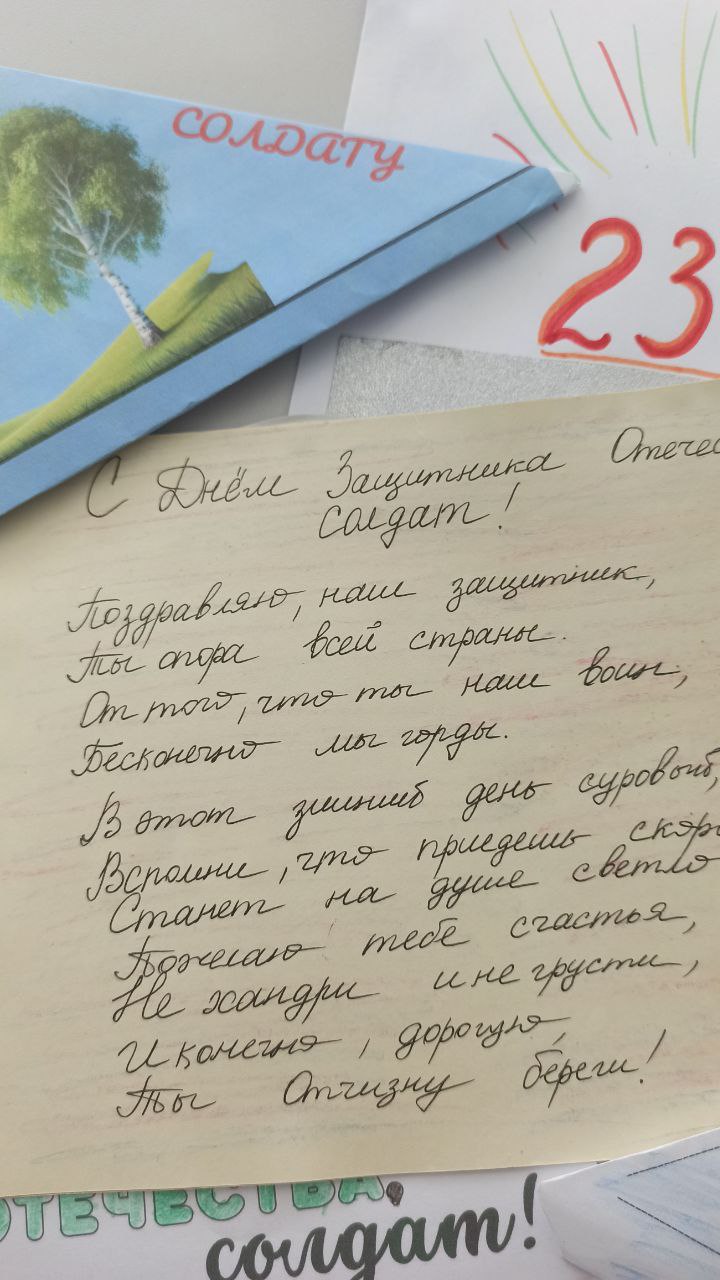 СОЛДАТУ
23
С Днём Защитника Отечес
солдат!
Поздравляю, наш защитник,
Ты опора всей страны.
От того, что ты наш воин,
Бесконечно мы горды.
В этот зимний день суровый,
Вспомни, что приедешь скоро
Станет на душе светло
Пожелаю тебе счастья,
Не хандри и не грусти,
И конечно, дорогую,
Ты Отчизну береги!
ОТЕЧЕСТВА,
солдат!